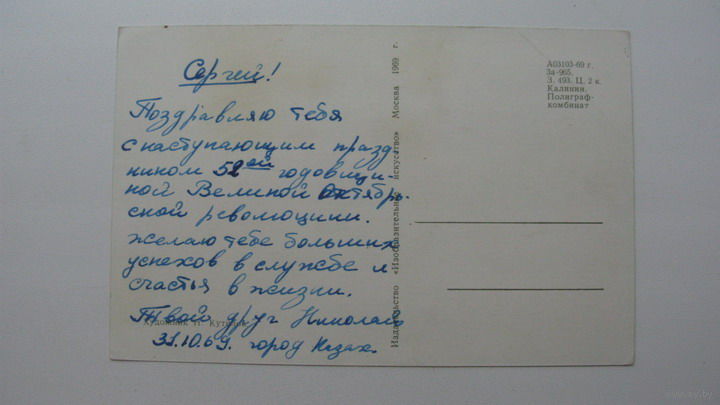 Сергей!
Поздравляю тебя
с наступающим празд
ником 52ой годовщи-
ной Великой Октябрь-
ской революции.
желаю тебе больших
успехов в службе и
счастья в жизни.
Твой друг Николай
31.10.69. город Казах.
Художник П. 
Издательство «Изобразительное искусство» Москва 1969 г.
А03103-69 г.
За-965.
З. 493. Ц. 2 к.
Калинин.
Полиграф-
комбинат